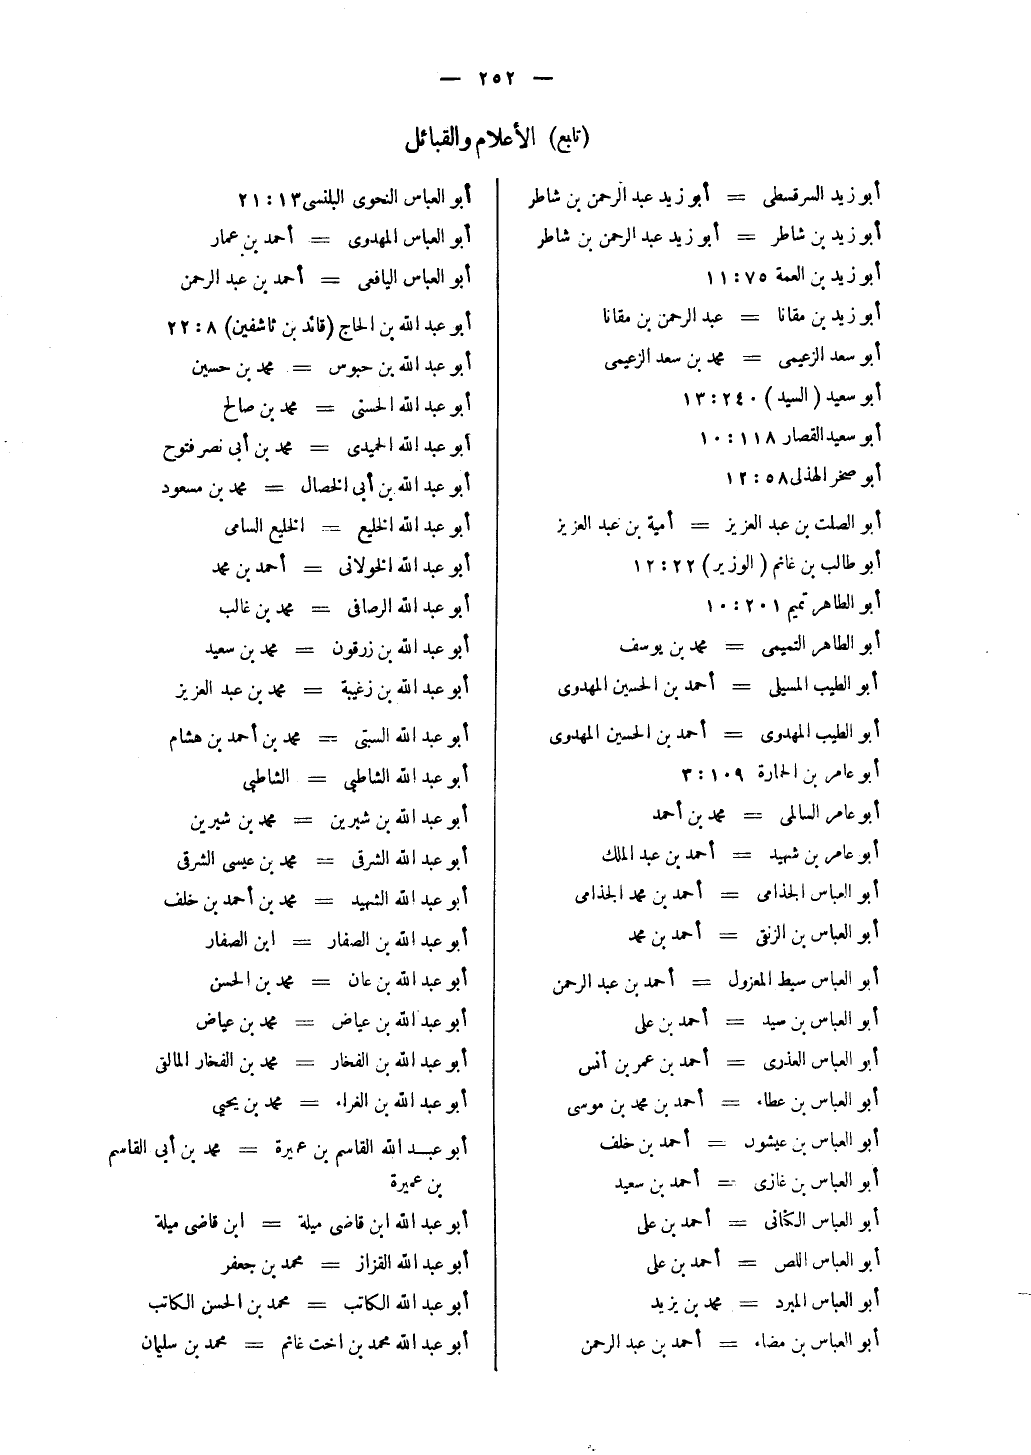 — ٢٥٢ —
(تابع) الأعلام والقبائل
أبو زيد السرقسطى = أبو زيد عبد الرحمن بن شاطر
أبو زيد بن شاطر = أبو زيد عبد الرحمن بن شاطر
أبو زيد بن العمة ٧٥ : ١١
أبو زيد بن مقانا = عبد الرحمن بن مقانا
أبو سعد الزعيمى = محمد بن سعد الزعيمى
أبو سعيد (السيد) ٢٤٠ : ١٣
أبو سعيد القصار ١١٨ : ١٠
أبو صخر الهذلى ٥٨ : ١٢
أبو الصلت بن عبد العزيز = أمية بن عبد العزيز
أبو طالب بن غانم (الوزير) ٢٢ : ١٢
أبو الطاهر تميم ٢٠١ : ١٠
أبو الطاهر التميمى = محمد بن يوسف
أبو الطيب المسيلى = أحمد بن الحسين المهدوى
أبو الطيب المهدوى = أحمد بن الحسين المهدوى
أبو عامر بن الحارة ١٠٩ : ٣
أبو عامر السالمى = محمد بن أحمد
أبو عامر بن شهيد = أحمد بن عبد الملك
أبو العباس الجذامى = أحمد بن محمد الجذامى
أبو العباس بن الزنقى = أحمد بن محمد
أبو العباس سبط المعزول = أحمد بن عبد الرحمن
أبو العباس بن سيد = أحمد بن على
أبو العباس العذرى = أحمد بن عمر بن أنس
أبو العباس بن عطاء = أحمد بن محمد بن موسى
أبو العباس بن عيشون = أحمد بن خلف
أبو العباس بن غازى = أحمد بن سعيد
أبو العباس الكنانى = أحمد بن على
أبو العباس اللص = أحمد بن على
أبو العباس المبرد = محمد بن يزيد
أبو العباس بن مضاء = أحمد بن عبد الرحمن
أبو العباس النحوى البلنسى ١٣ : ٢١
أبو العباس المهدوى = أحمد بن عمار
أبو العباس اليافعى = أحمد بن عبد الرحمن
أبو عبد الله بن الحاج (قائد بن تاشفين) ٨ : ٢٢
أبو عبد الله بن حبوس = محمد بن حسين
أبو عبد الله الحسنى = محمد بن صالح
أبو عبد الله الحميدى = محمد بن أبى نصر فتوح
أبو عبد الله بن أبى الخصال = محمد بن مسعود
أبو عبد الله الخليع = الخليع السامى
أبو عبد الله الخولانى = أحمد بن محمد
أبو عبد الله الرصافى = محمد بن غالب
أبو عبد الله بن زرقون = محمد بن سعيد
أبو عبد الله بن زغيبة = محمد بن عبد العزيز
أبو عبد الله السبتى = محمد بن أحمد بن هشام
أبو عبد الله الشاطبي = الشاطبي
أبو عبد الله بن شبرين = محمد بن شبرين
أبو عبد الله الشرقى = محمد بن عيسى الشرقى
أبو عبد الله الشهيد = محمد بن أحمد بن خلف
أبو عبد الله بن الصفار = ابن الصفار
أبو عبد الله بن عان = محمد بن الحسن
أبو عبد الله بن عياض = محمد بن عياض
أبو عبد الله بن الفخار = محمد بن الفخار المالقى
أبو عبد الله بن الفراء = محمد بن يحيى
أبو عبد الله القاسم بن عميرة = محمد بن أبى القاسم
بن عميرة
أبو عبد الله ابن قاضى ميلة = ابن قاضى ميلة
أبو عبد الله القزاز = محمد بن جعفر
أبو عبد الله الكاتب = محمد بن الحسن الكاتب
أبو عبد الله محمد بن اخت غانم = محمد بن سليمان